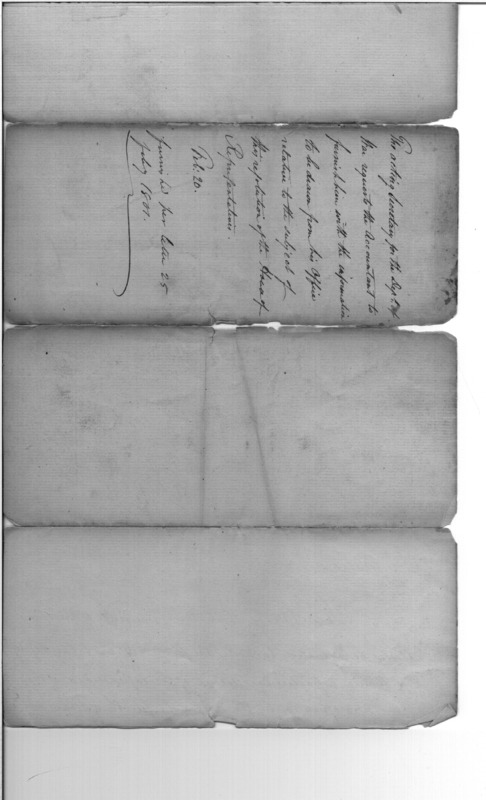 The acting Secretary for the Dept. of
War requests the Accountant to
furnish him with the information
to be drawn from his Office
relative to the subject of
this resolution of the House of
Representatives.
Feb. 20.
furnishd per letter 25
feby 1801.